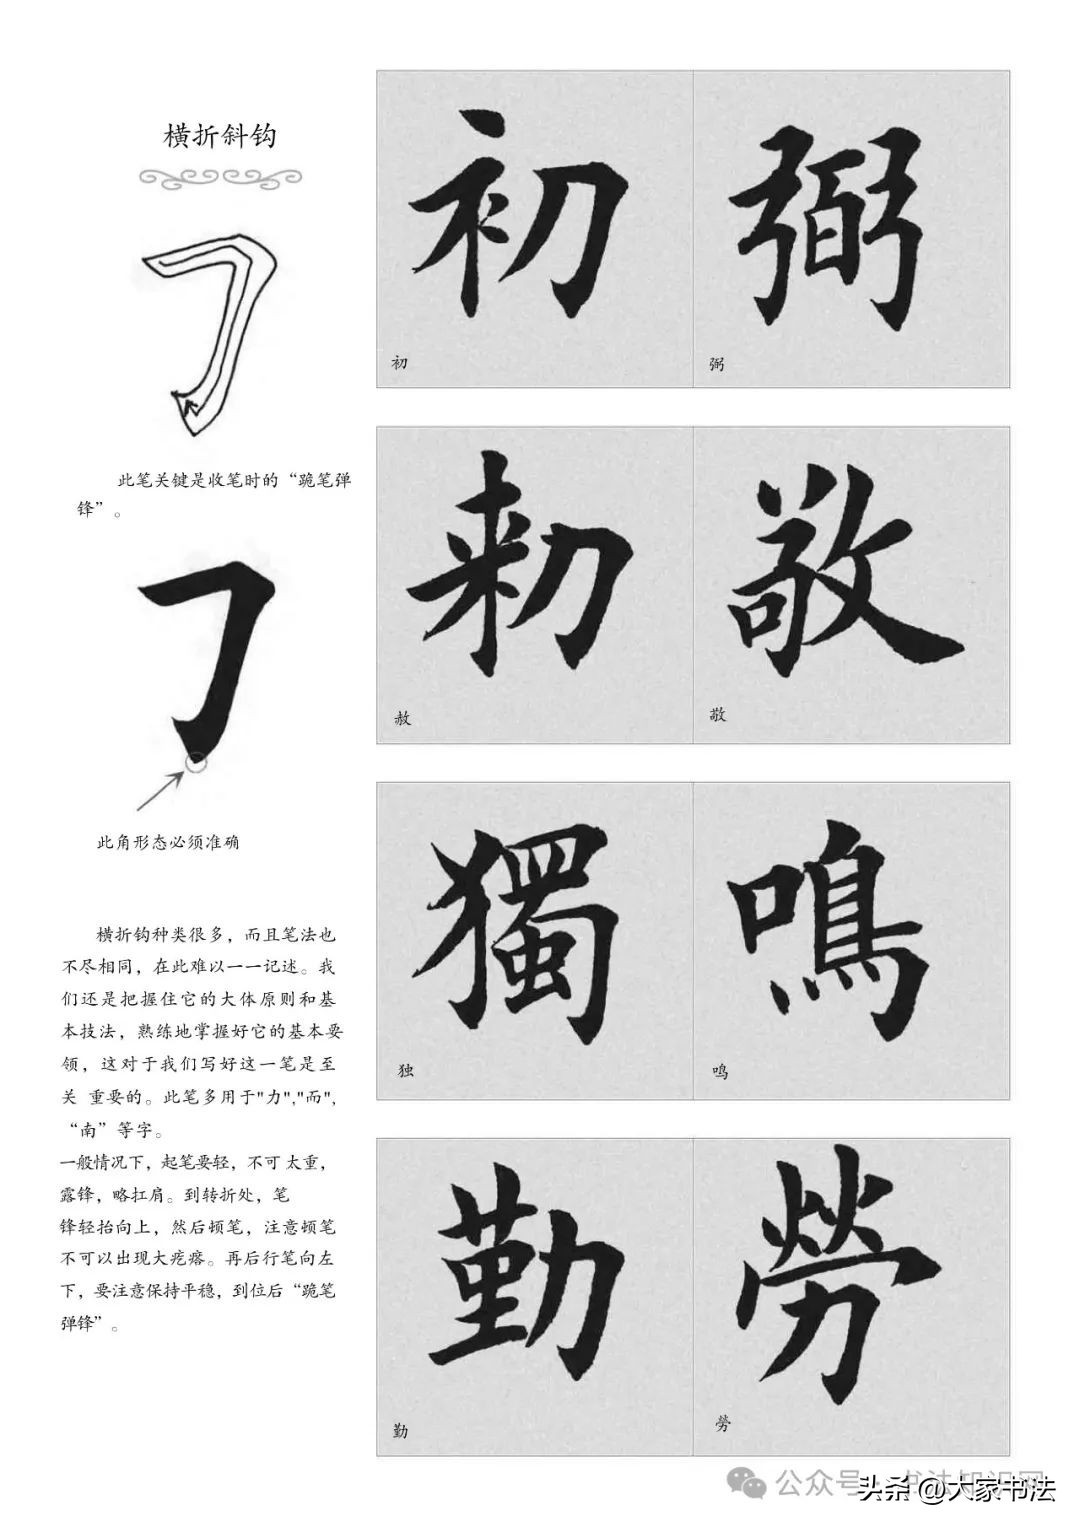 横折斜钩
此笔关键是收笔时的“跪笔弹
锋”。
此角形态必须准确
横折钩种类很多，而且笔法也
不尽相同，在此难以一一记述。我
们还是把握住它的大体原则和基
本技法，熟练地掌握好它的基本要
领，这对于我们写好这一笔是至
关 重要的。此笔多用于"力","而",
“南”等字。
一般情况下，起笔要轻，不可 太重，
露锋，略扛肩。到转折处，笔
锋轻抬向上，然后顿笔，注意顿笔
不可以出现大疙瘩。再后行笔向左
下，要注意保持平稳，到位后“跪笔
弹锋”。
初 弼
初 弼
勑 敬
赦 敬
獨 鳴
独 鸣
勤 勞
勤 勞
公众号·书法知识网
头条@大家书法